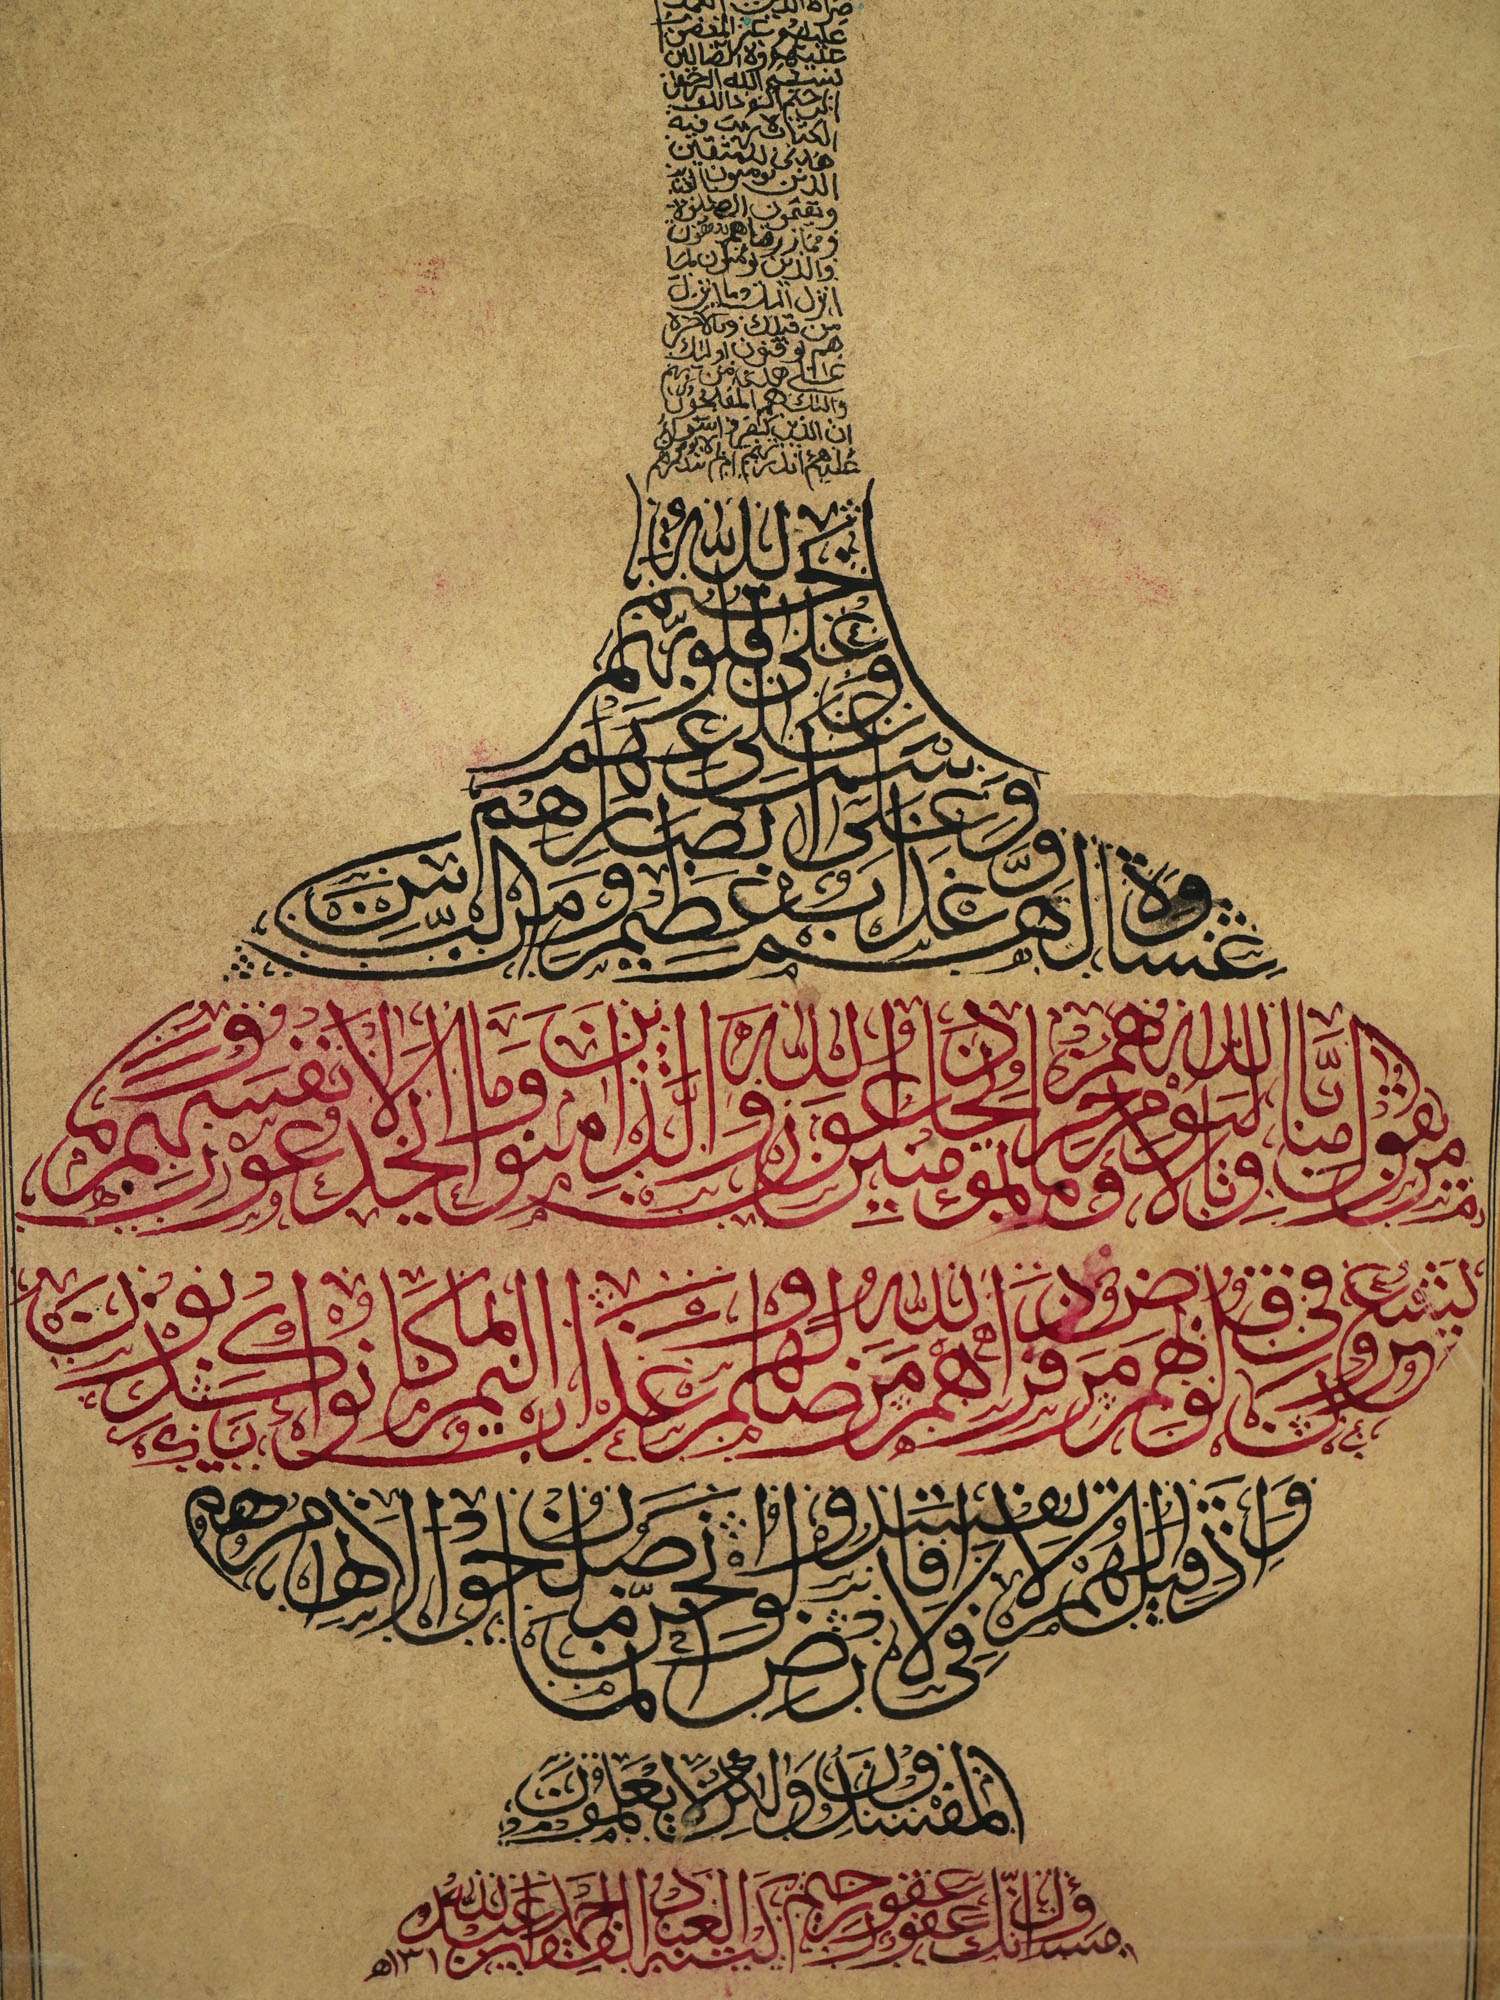 صراط الذين انعمت
عليهم غير المغضوب
عليهم ولا الضالين
بسم الله الرحمن
الرحيم الم ذالك
الكتاب لا ريب فيه
هدى للمتقين
الذين يومنون
ويقيمون الصلوة
ومما رزقناهم ينفقون
والذين يؤمنون بما
انزل اليك وما انزل
من قبلك وبالاخرة
هم يوقنون اولئك
على هدى من ربهم
واولئك هم المفلحون
ان الذين كفروا سواء
عليهم أانذرتهم ام لم تنذرهم
ختم الله
على قلوبهم
وعلى سمعهم
وعلى ابصارهم
غشاوة ولهم عذاب عظيم ومن الناس
من يقول امنا بالله وباليوم الاخر وما هم بمؤمنين يخادعون الله والذين امنوا وما يخدعون الا انفسهم وما
يشعرون في قلوبهم مرض فزادهم الله مرضا ولهم عذاب اليم بما كانوا يكذبون
واذا قيل لهم لا تفسدوا في الارض قالوا انما نحن مصلحون الا انهم هم
المفسدون ولكن لا يعلمون
غفور رحيم كتبه العبد الفقير احمد عبد الله ١٣١ه